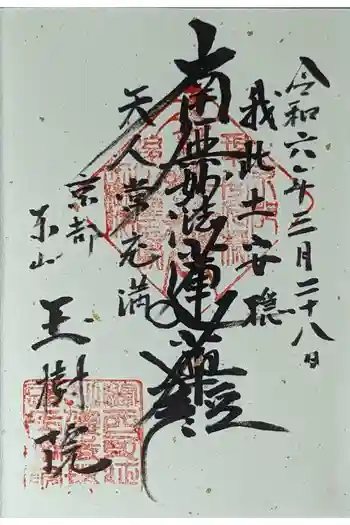 令和六年三月二十八日
我此土安穏
南無妙法蓮華経
天人常充満
京都
東山
玉樹院